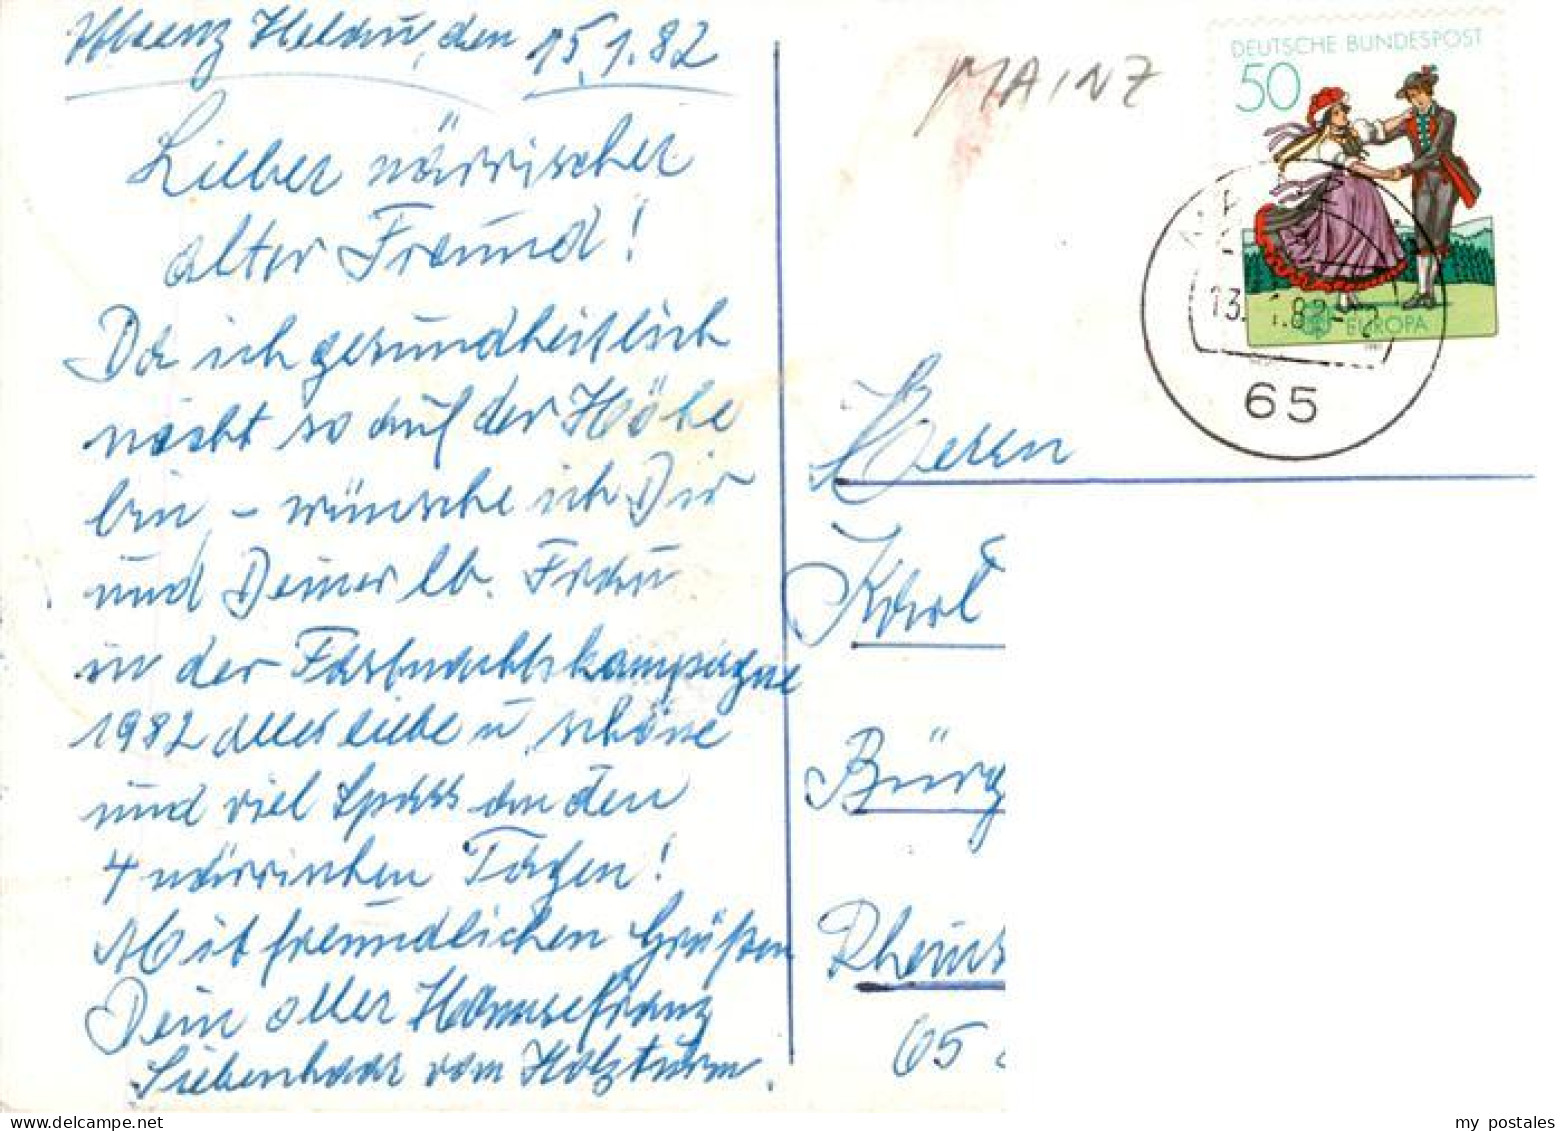 Mainz Helau, den 15.1.82
Lieber närrischer
alter Freund!
Da ich gesundheitlich
nicht so auf der Höhe
bin, - wünsche ich Dir
und Deiner lb. Frau
in der Fastnachtskampagne
1982 alles liebe u. schöne
und viel Spass an den
4 närrischen Tagen!
Mit freundlichen Grüßen
Dein alter Hannsefranz
Siebenhaar vom Holzturm.
MAINZ
DEUTSCHE BUNDESPOST
50
EUROPA
1981
65
Herrn
Karl
Bürg
Rheins
65
my postales